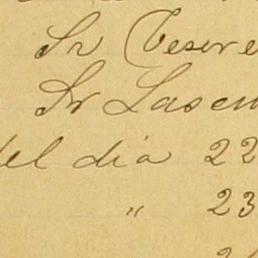 Sr Tesore
Sr Lascu
del dia 22
" 23